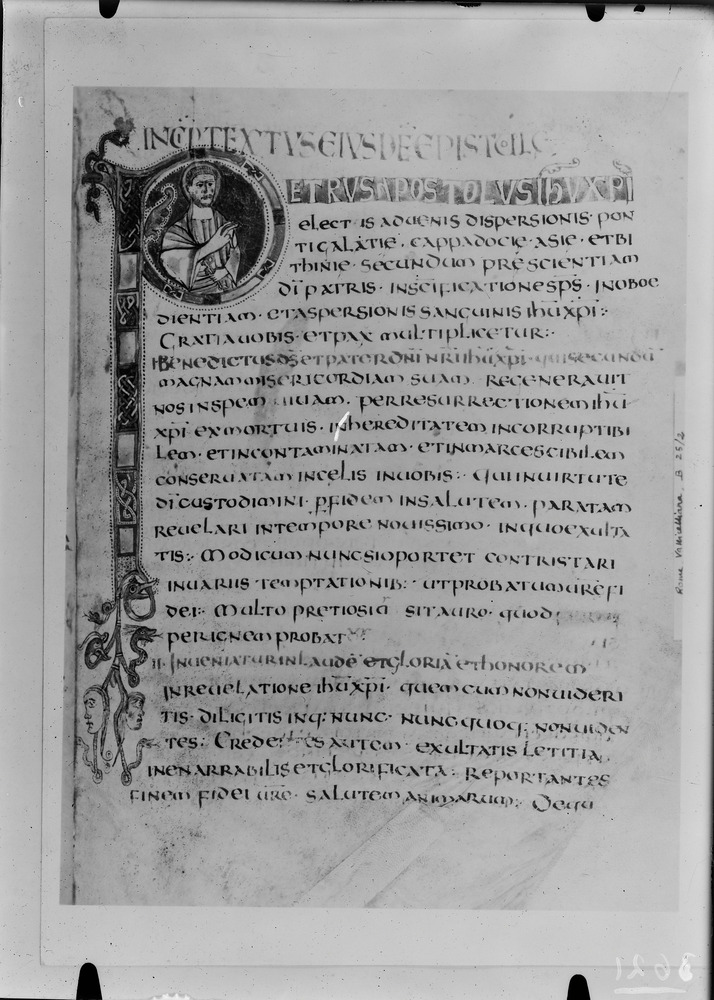 INCIP TEXTUS EIUSDE EPISTOLE
PETRUS APOSTOLUS IHU XPI
electis advenis dispersionis · pon
ti galatie · cappadocie · asie · et bi
thinie · secundum prescientiam
di patris · in scificatione sps · in oboe
dientiam · et aspersionis sanguinis ihu xpi :·
Gratia vobis · et pax multiplicetur :·
Benedictus ds et pater dni nri ihu xpi · qui secundu
magnam misericordiam suam · regeneravit
nos in spem vivam · per resurrectionem ihu
xpi ex mortuis · in hereditatem incorruptibi
lem · et incontaminatam · et inmarcescibilem
conservatam in celis in vobis :· qui in virtute
di custodimini · p fidem in salutem · paratam
revelari in tempore novissimo · in quo exulta
tis :· Modicum nunc si oportet contristari
in variis temptationib: · ut probatum vre fi
dei :· Multo pretiosiu sit auro · quod
per ignem probat
II · Inveniatur in laude et gloria et honorem
in revelatione ihu xpi · quem cum non videri
tis · diligitis in q: nunc · nunc quoq: non viden
tes :· Credentes autem · exultatis letitia
inenarrabilis et glorificata :· Reportantes
finem fidei vre · salutem animarum :· De qu
Rome Vallicelliana B 25/2
3621